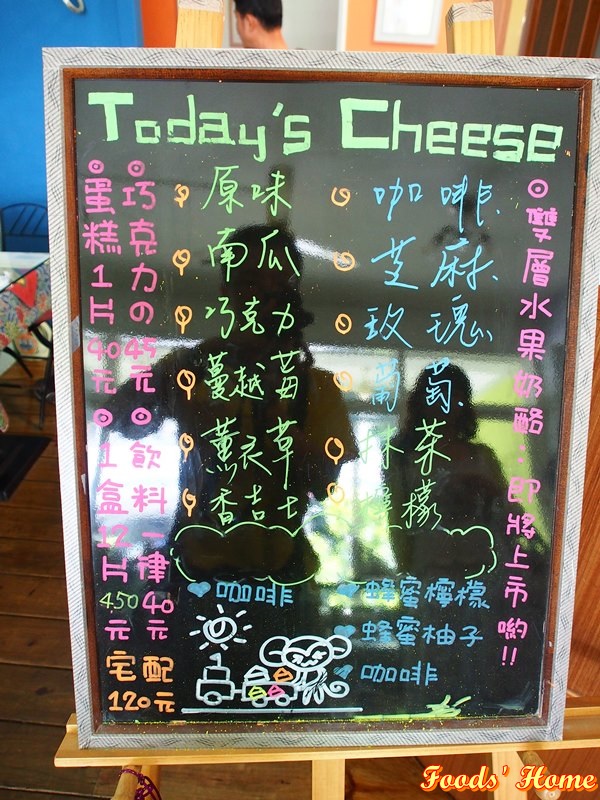 Today's Cheese
原味
南瓜
巧克力
蔓越莓
薰衣草
香吉士
咖啡
芝麻
玫瑰
葡萄
抹茶
檸檬
雙層水果奶酪:即將上市喲!!
巧克力の45元
蛋糕1片90元
飲料一律40元
1盒12片450元
宅配120元
咖啡
蜂蜜檸檬
蜂蜜柚子
咖啡
Foods' Home